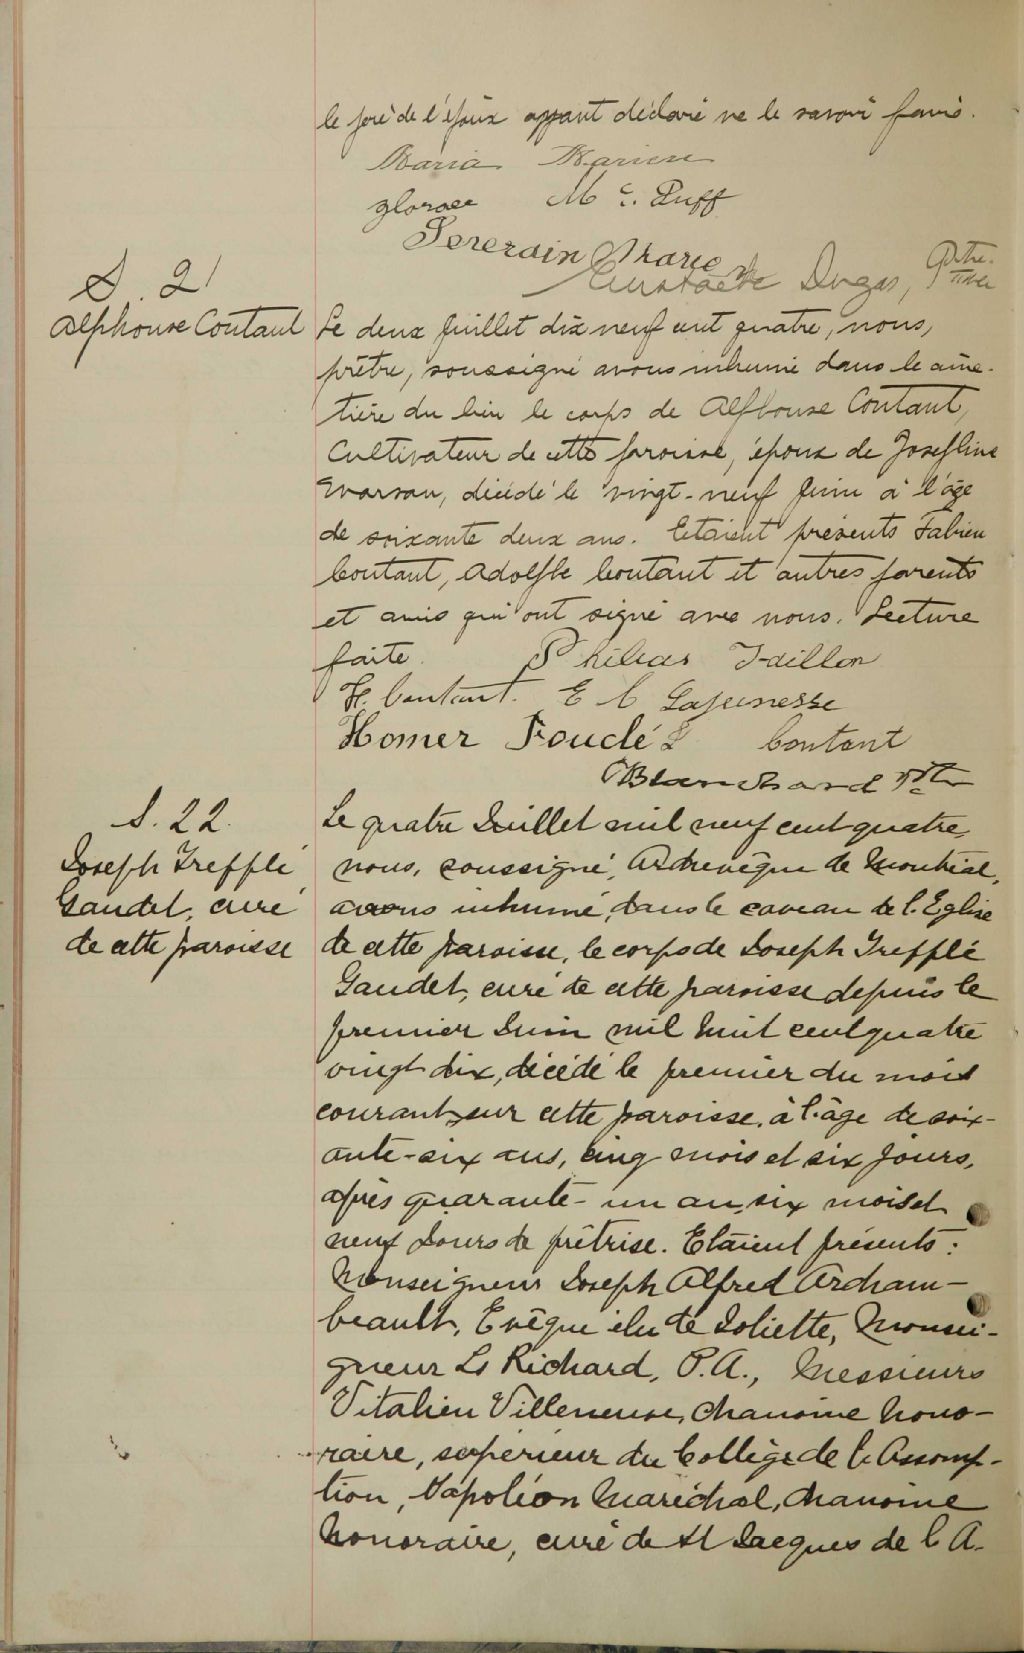 le père de l'époux ayant déclaré ne le savoir faire.
Maria Marion
Mc. Duff
Severain Mario
Eustache Dugas, Ptre.
S. 21
Alphonse Coutant
Le deux Juillet dix neuf cent quatre, nous,
prêtre, soussigné avons inhumé dans le cime-
tière du lieu le corps de Alphonse Coutant,
Cultivateur de cette paroisse, époux de Josephine
décédé le vingt-neuf Juin à l'âge
de soixante deux ans. Etaient présents Fabien
Coutant, Adolphe Coutant et autres parents
et amis qui ont signé avec nous. Lecture
faite. Philias
H. Coutant. E C Lajeunesse
Homer Coutant
Blanchard Ptre
S. 22.
Joseph Trefflé
Gaudet, curé
de cette paroisse
Le quatre Juillet mil neuf cent quatre,
nous, soussigné, Archevêque de Montréal,
avons inhumé, dans le caveau de l'Eglise
de cette paroisse, le corps de Joseph Trefflé
Gaudet, curé de cette paroisse depuis le
premier Juin mil huit cent quatre
vingt dix, décédé le premier du mois
courant, sur cette paroisse, à l'âge de soix-
ante-six ans, cinq mois et six jours,
après quarante-un an, six mois et
neuf Jours de prêtrise. Etaient présents:
Monseigneur Joseph Alfred Archam-
beault, Evêque élu de Joliette, Monsei-
gneur Ls Richard, P.A., Messieurs
Vitalien Villeneuve, chanoine hono-
raire, supérieur du Collège de l'Assomp-
tion, Napoléon Maréchal, chanoine
honoraire, curé de St Jacques de l'A-